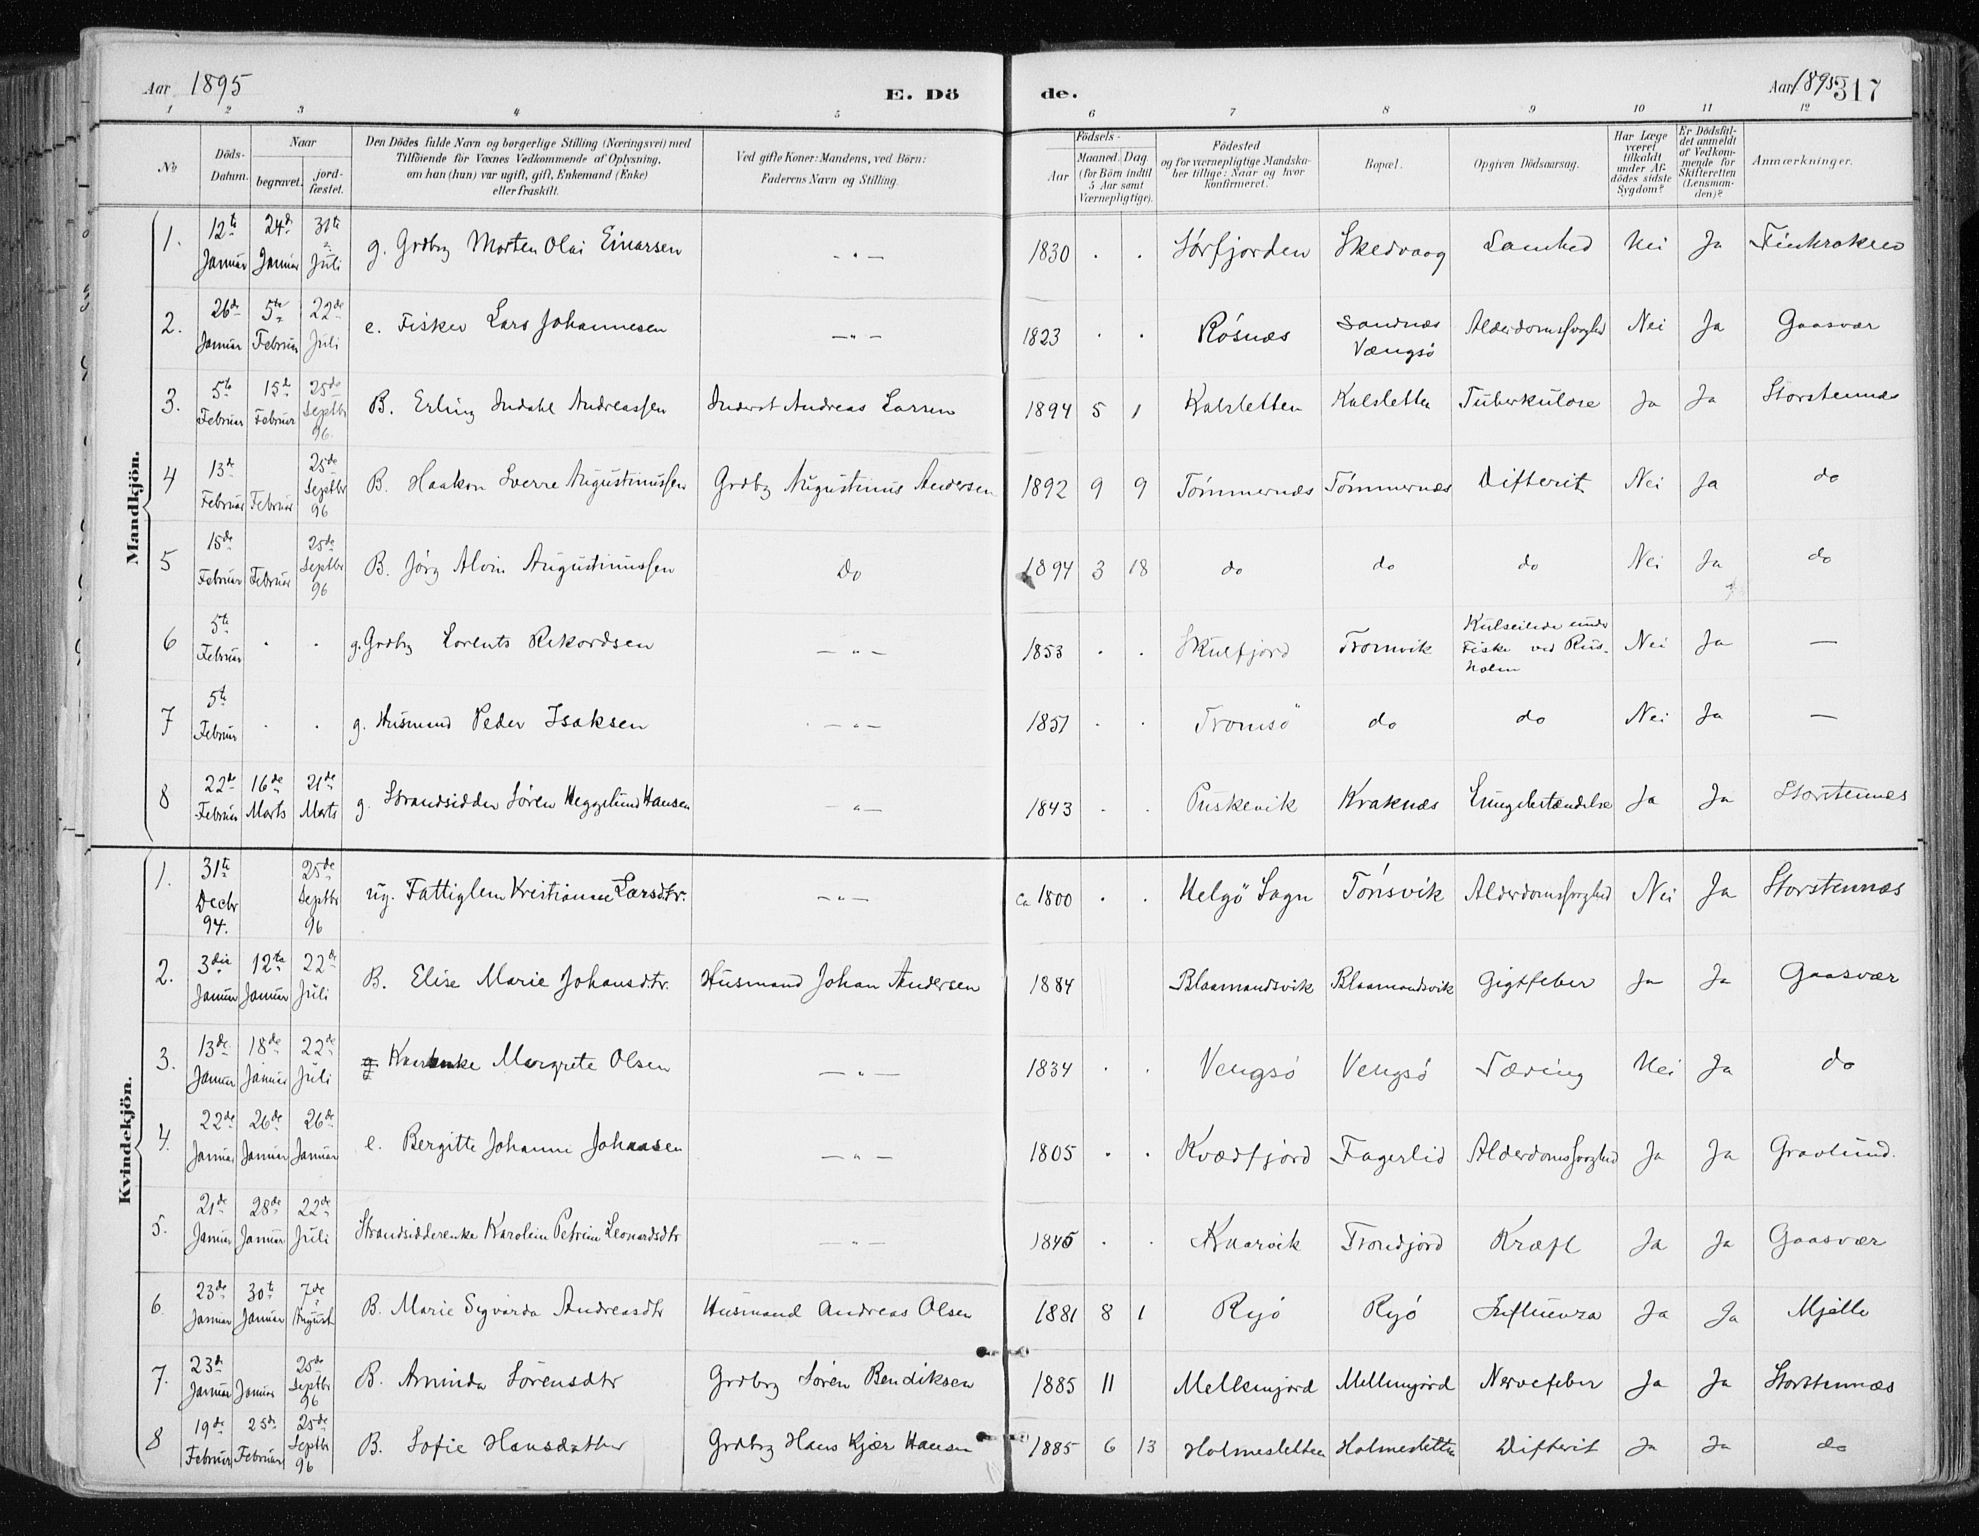 Aar 1895 E. Döde. Aar 1895 317
1 2 3 4 5 6 7 8 9 10 11 12
No Döds-Datum. Naar begravet. jord-fæstet. Den Dödes fulde Navn og borgerlige Stilling (Næringsvei) med Tilföiende för Voxnes Vedkommende af Oplysning, om han (hun) var ugift, gift, Enkemand (Enke) eller fraskilt. Ved gifte Koner: Mandens, ved Börn: Faderens Navn og Stilling. Födsels- Aar Maaned. Dag (for Börn indtil 5 Aar samt Værnepligtige). Födested og for værnepligtige Mandskaber tillige: Naar og hvor konfirmeret. Bopæl. Opgiven Dödsaarsag. Har Læge været tilkaldt under Afdödes sidste Sygdom? Er Dödsfaldet anmeldt af Vedkommende for Skifteretten (Lensmanden)? Anmærkninger.
Mandkjön.
1. 12te Januar 24de Januar 31te Juli g. Grdbrg Morten Olai Einarsen - " - 1830 . . Sørfjorden Skedvaag Nei Ja Finkroken
2. 26de Januar 5te Februar 22de Juli e. Fisker Lars Johannesen - " - 1823 . . Røsnæs Sandnæs Vængsø Alderdomssvaghed Nei Ja Gaasvær
3. 5te Februar 15de Februar 25de Septbr 96. B. Erling Indahl Andreassen Inderst Andreas Larsen 1894 5 1 Kalsletten Kalsletten Tuberkulose Ja Ja Storstennæs
4 13de Februar Februar 25de Septbr 96 B. Haakon Sverre Augustinussen Grdbrg Augustinus Andersen 1892 9 9 Tömmernæs Tömmernæs Difterit Nei Ja do
5 15de Februar Februar 25de Septbr 96 B. Jörg Alvin Augustinussen Do 1894 3 18 do do do Nei Ja do
6 5te Februar . . g. Grdbrg Lorents Rikordsen - " - 1853 . . Skulfjord Tromvik Kulseilede under Fiske ved Rusholm Nei Ja —
7 5te Februar . . g. Husmand Peder Isaksen - " - 1851 . . Tromsö do do Nei Ja —
8 22de Februar 16de Marts 21de Marts g. Strandsidder Sören Heggelund Hansen - " - 1843 . . Kraknæs Lungebetændelse Ja Ja Storstennæs
Kvindekjön.
1. 31te Decbr 94. 25de Septbr 96 ug. Fattiglem Kristianna Larsdtr. - " - ca 1800 . . Helgö Sogn Tönsvik Alderdomssvaghed Nei Ja Storstennæs
2. 3die Januar 12te Januar 22de Juli B. Elise Marie Johansdtr. Husmand Johan Andersen 1884 Blaamandsvik Blaamandsvik Gigtfeber Ja Ja Gaasvær
3. 13de Januar 18de Januar 22de Juli Margrete Olsen - " - 1834 . . Vengsö Vengsö Tæring Nei Ja do
4. 22de Januar 26de Januar 26de Januar e. Bergitte Johanna Johansen - " - 1805 . . Kvædfjord Fagerlid Alderdomssvaghed Ja Ja Gravlund.
5. 21de Januar 28de Januar 22de Juli Strandsidderenke Karolein Petrine Leonardsdtr - " - 1845 . . Kvarvik Trondjord Kræft Ja Ja Gaasvær
6. 23de Januar 30te Januar 7de August B. Marie Sigvarda Andreasdtr Husmand Andreas Olsen 1881 8 1 Ryö Ryö Influenza Ja Ja Mjelle
7. 23de Januar Januar 25de Septbr 96 B. Arninda Sörensdtr Grdbrg Sören Bendiksen 1885 11 Mellemjord Mellemjord Nervefeber Ja Ja Storstennæs
8 19de Februar 25de Februar 25de Septbr 96 B. Sofie Hansdatter Grdbrg Hans Kjær Hansen 1885 6 13 Holmesletten Holmesletten Difterit Ja Ja do